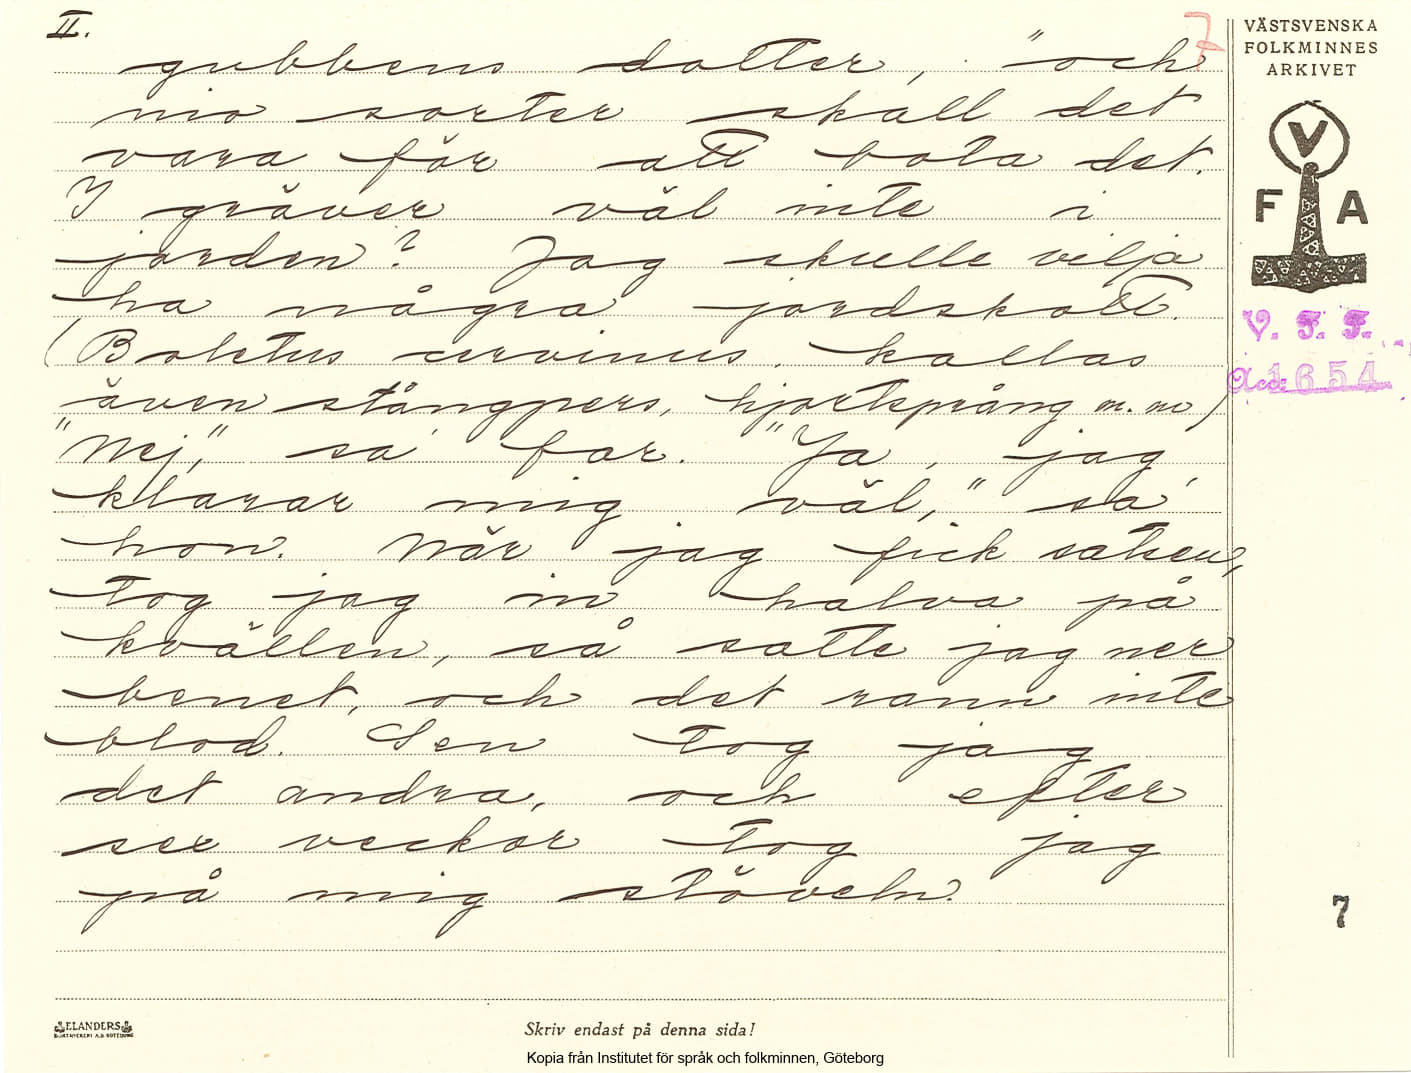 II.
7
gubbens dotter, "och
nio sorter skall det
vara för att bota det.
I gräver väl inte i
jorden? Jag skulle vilja
ha några jordskott.
(Boletus cervinus, kallas
även stångpers, hjortsprång m. m)
"Nej," sa' far. "Ja, jag
klarar mig väl," sa'
hon. När jag fick satsen,
tog jag in halva på
kvällen, så satte jag ner
benet, och det rann inte
blod. Sen tog jag
det andra, och efter
sex veckor tog jag
på mig stöveln.
VÄSTSVENSKA
FOLKMINNES
ARKIVET
V
F A
V. F. F.
Acc: 1654
7
ELANDERS
BOKTRYCKERI A.B. GÖTEBORG
Skriv endast på denna sida!
Kopia från Institutet för språk och folkminnen, Göteborg